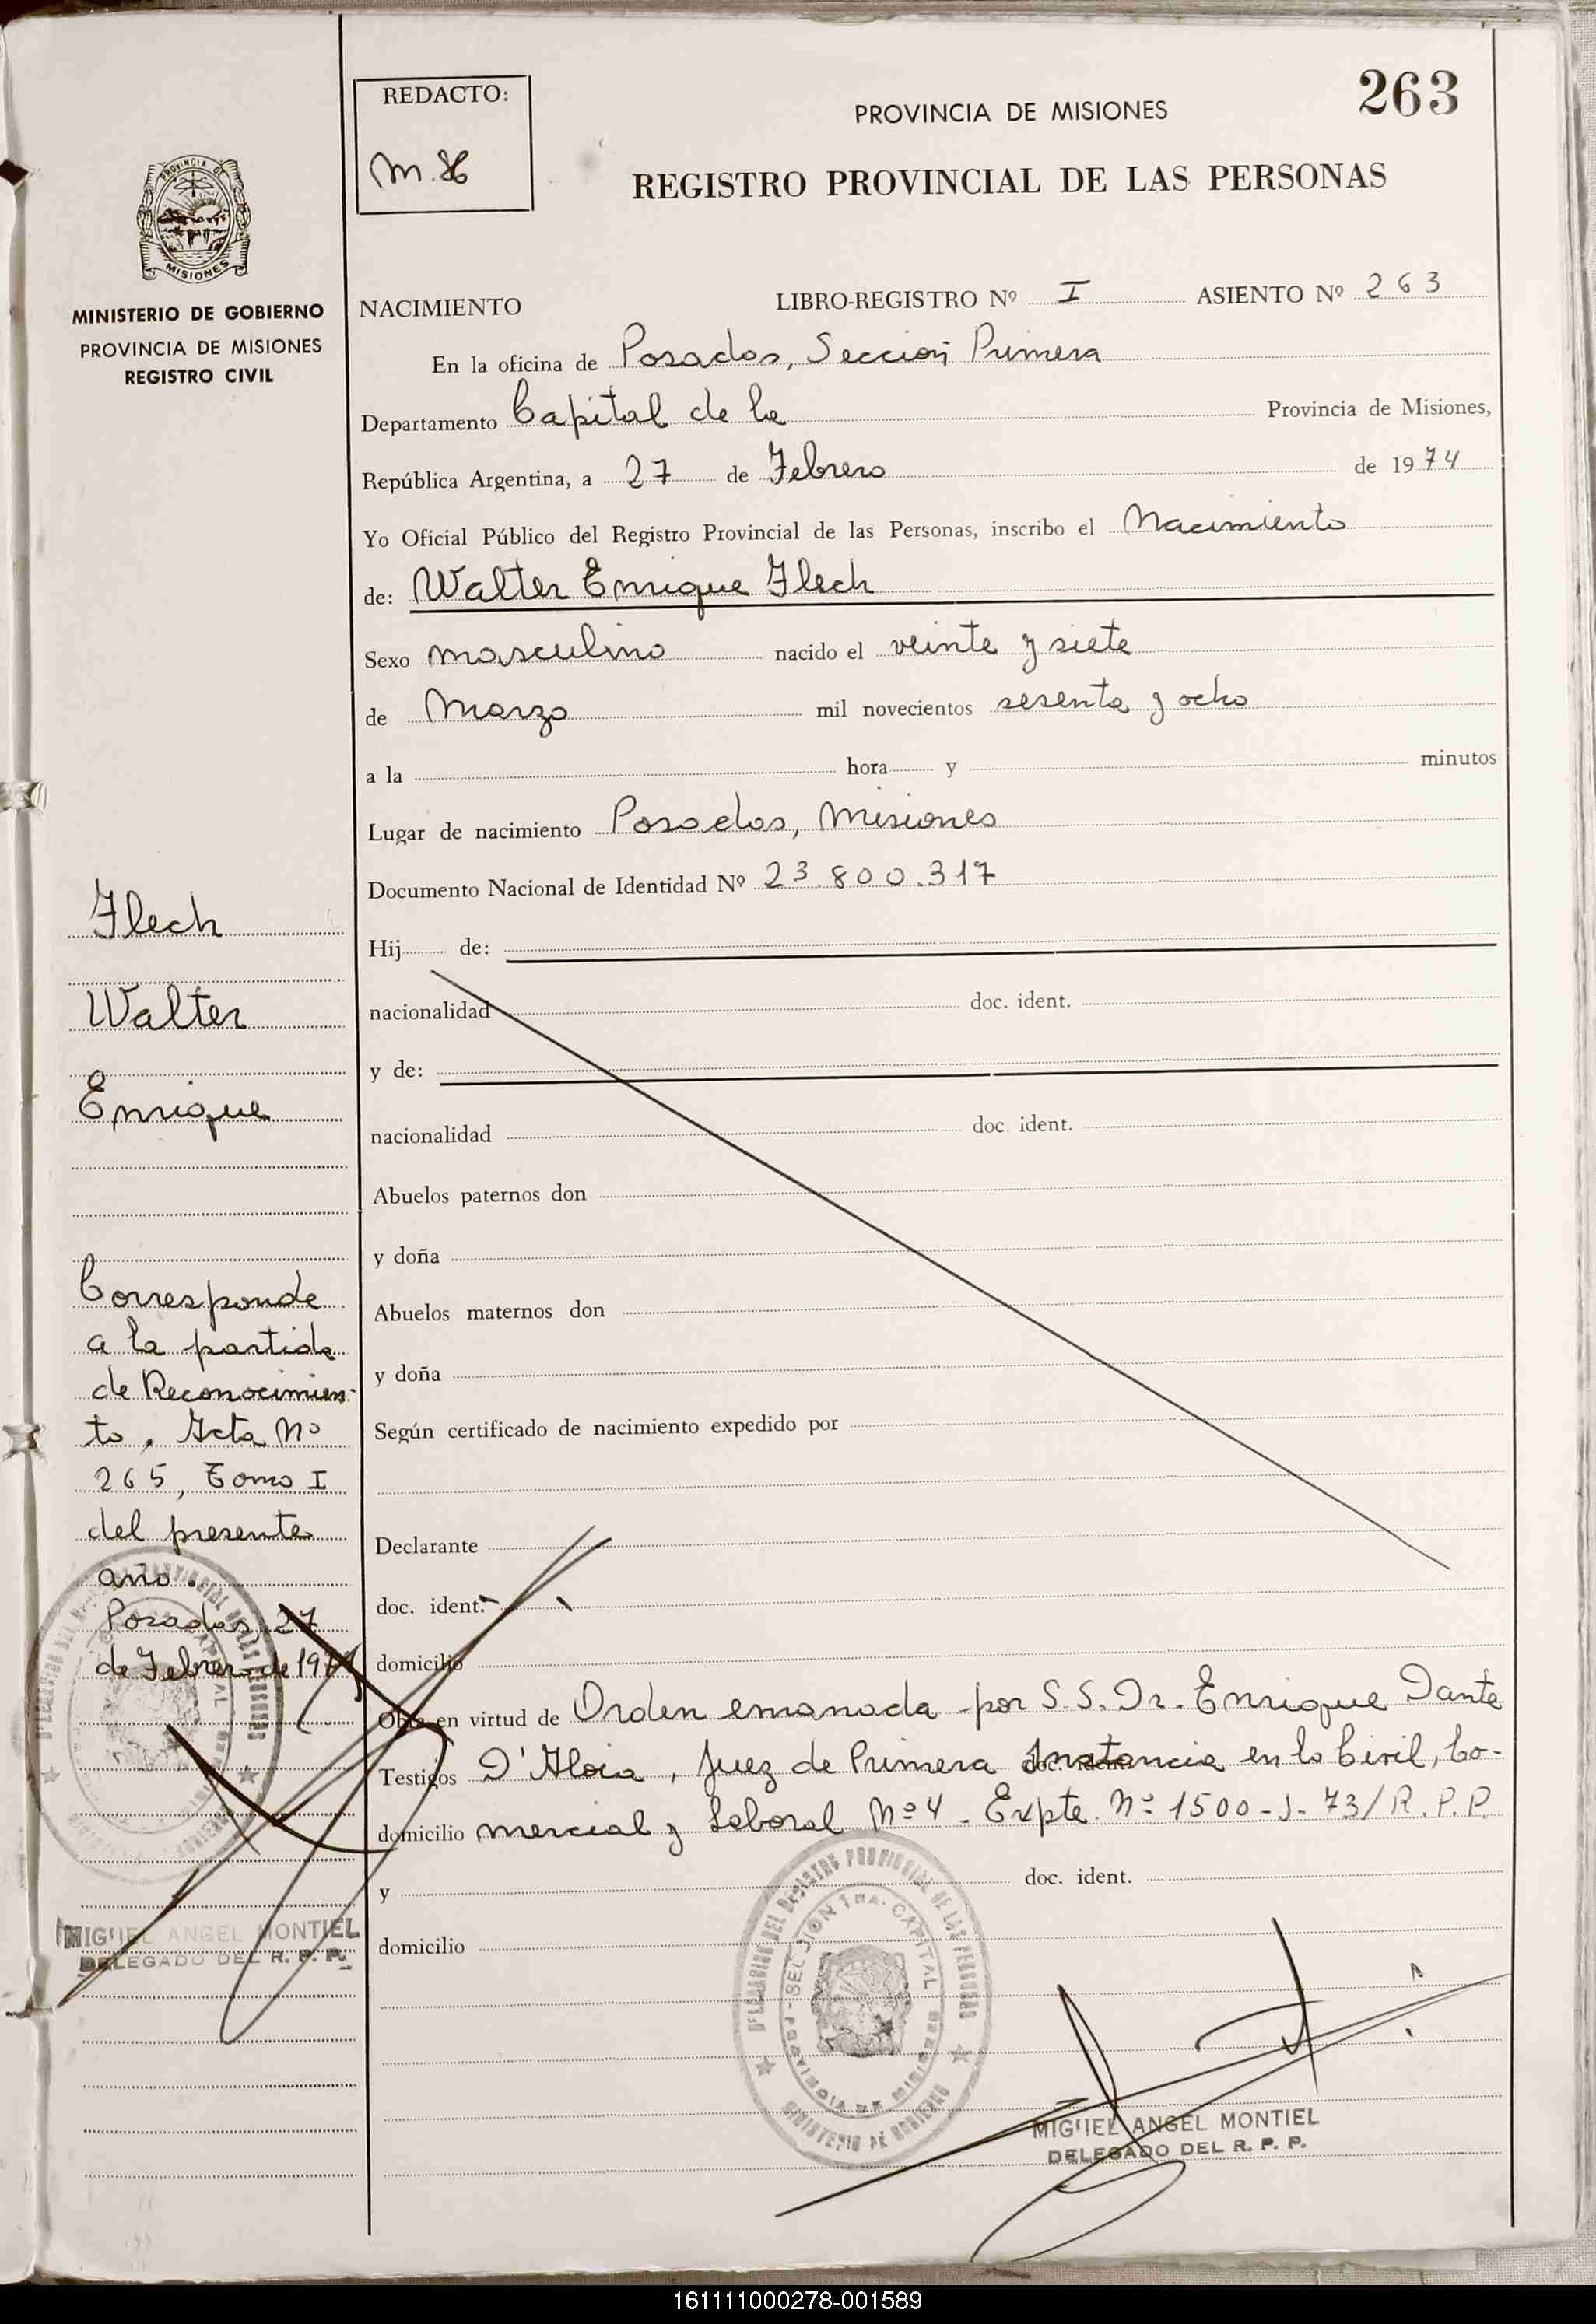 263
REDACTO:
PROVINCIA DE MISIONES
REGISTRO PROVINCIAL DE LAS PERSONAS
PROVINCIA DE
MISIONES
MINISTERIO DE GOBIERNO
PROVINCIA DE MISIONES
REGISTRO CIVIL
NACIMIENTO LIBRO-REGISTRO Nº I ASIENTO Nº 263
En la oficina de Posadas, Sección Primera
Departamento Capital de la Provincia de Misiones,
República Argentina, a 27 de Febrero de 1974
Yo Oficial Público del Registro Provincial de las Personas, inscribo el Nacimiento
de: Walter Enrique Flech
Sexo masculino nacido el veinte y siete
de Marzo mil novecientos sesenta y ocho
a la hora y minutos
Lugar de nacimiento Posadas, Misiones
Documento Nacional de Identidad Nº 23.800.317
Hij de:
nacionalidad doc. ident.
y de:
nacionalidad doc. ident.
Abuelos paternos don
y doña
Abuelos maternos don
y doña
Según certificado de nacimiento expedido por
Declarante
doc. ident.
domicilio
Obra en virtud de Orden emanada por S.S. Dr. Enrique Dante
Testigos D'Aloia, Juez de Primera Instancia en lo Civil, Co-
domicilio mercial y Laboral Nº 4 - Expte. Nº 1500-J-73/R.P.P.
y doc. ident.
domicilio
Flech
Walter
Enrique
Corresponde
a la partida
de Reconocimien-
to, Acta Nº
265, Tomo I
del presente
año.
Posadas, 27
de Febrero de 1974
MIGUEL ANGEL MONTIEL
DELEGADO DEL R. P. P.
DELEGACION DEL REGISTRO PROVINCIAL DE LAS PERSONAS
SECCION 1RA. CAPITAL
PROVINCIA DE MISIONES
MINISTERIO DE GOBIERNO
MIGUEL ANGEL MONTIEL
DELEGADO DEL R. P. P.
161111000278-001589